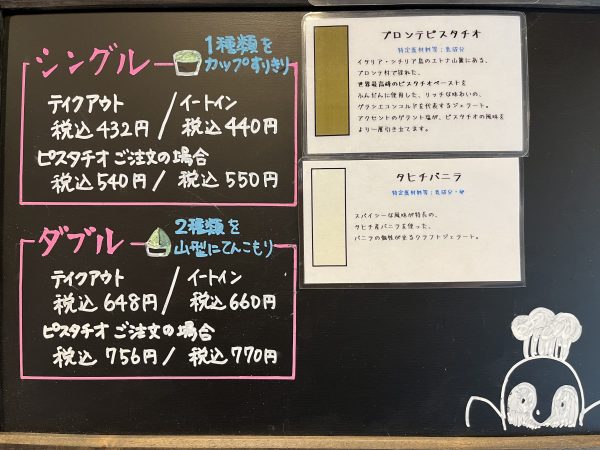 シングル
1種類を
カップすりきり
テイクアウト / イートイン
税込432円 / 税込440円
ピスタチオご注文の場合
税込540円 / 税込550円
ダブル
2種類を
山型にてんこもり
テイクアウト / イートイン
税込648円 / 税込660円
ピスタチオご注文の場合
税込756円 / 税込770円
ブロンテピスタチオ
特定原材料等:乳成分
イタリア・シチリア島のエトナ山麓にある、
ブロンテ村で採れた、
世界最高峰のピスタチオペーストを
ふんだんに使用した、リッチな味わいの、
グランエコンコルドを代表するジェラート。
アクセントのゲラント塩が、ピスタチオの風味を
より一層引き立てます。
タヒチバニラ
特定原材料等:乳成分・卵
スパイシーな風味が特長の、
タヒチ産バニラを使った、
バニラの個性が光るクラフトジェラート。